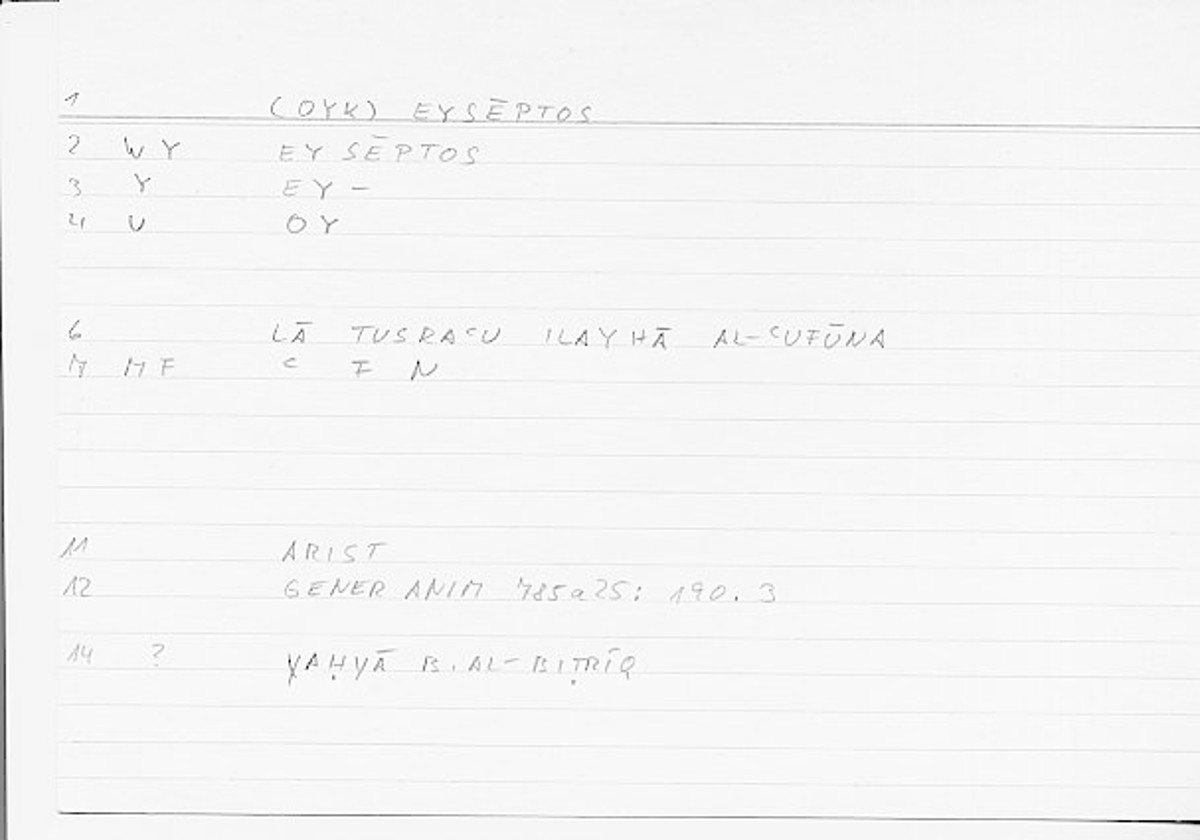 1 (OYK) EYSĒPTOS
2 WY EYSĒPTOS
3 Y EY-
4 U OY
6 LĀ TUSRAᶜU ILAYHĀ AL-ᶜUFŪNA
7 MF ᶜ F N
11 ARIST
12 GENER ANIM 785a25: 190.3
14 ? YAḤYĀ B. AL-BIṬRĪQ